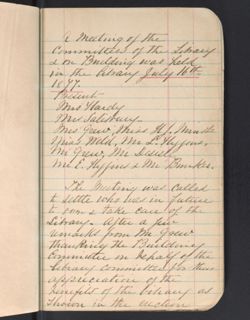 A Meeting of the
Committee of the Library
& on Building was held
in the Library July 16th
1877.
Present
Mrs Hardy
Mrs Salisbury
Mrs Grew, Miss H.
Miss Weld, Mr
Mr Grew, Mr
Mr E. & Mr Bunker.
The Meeting was called
to settle who was in future
to own & take care of the
Library. After a few
remarks from Mr Grew
thanking the Building
committee on behalf of the
Library committee for their
appreciation of the
benefit of the Library as
shown in the